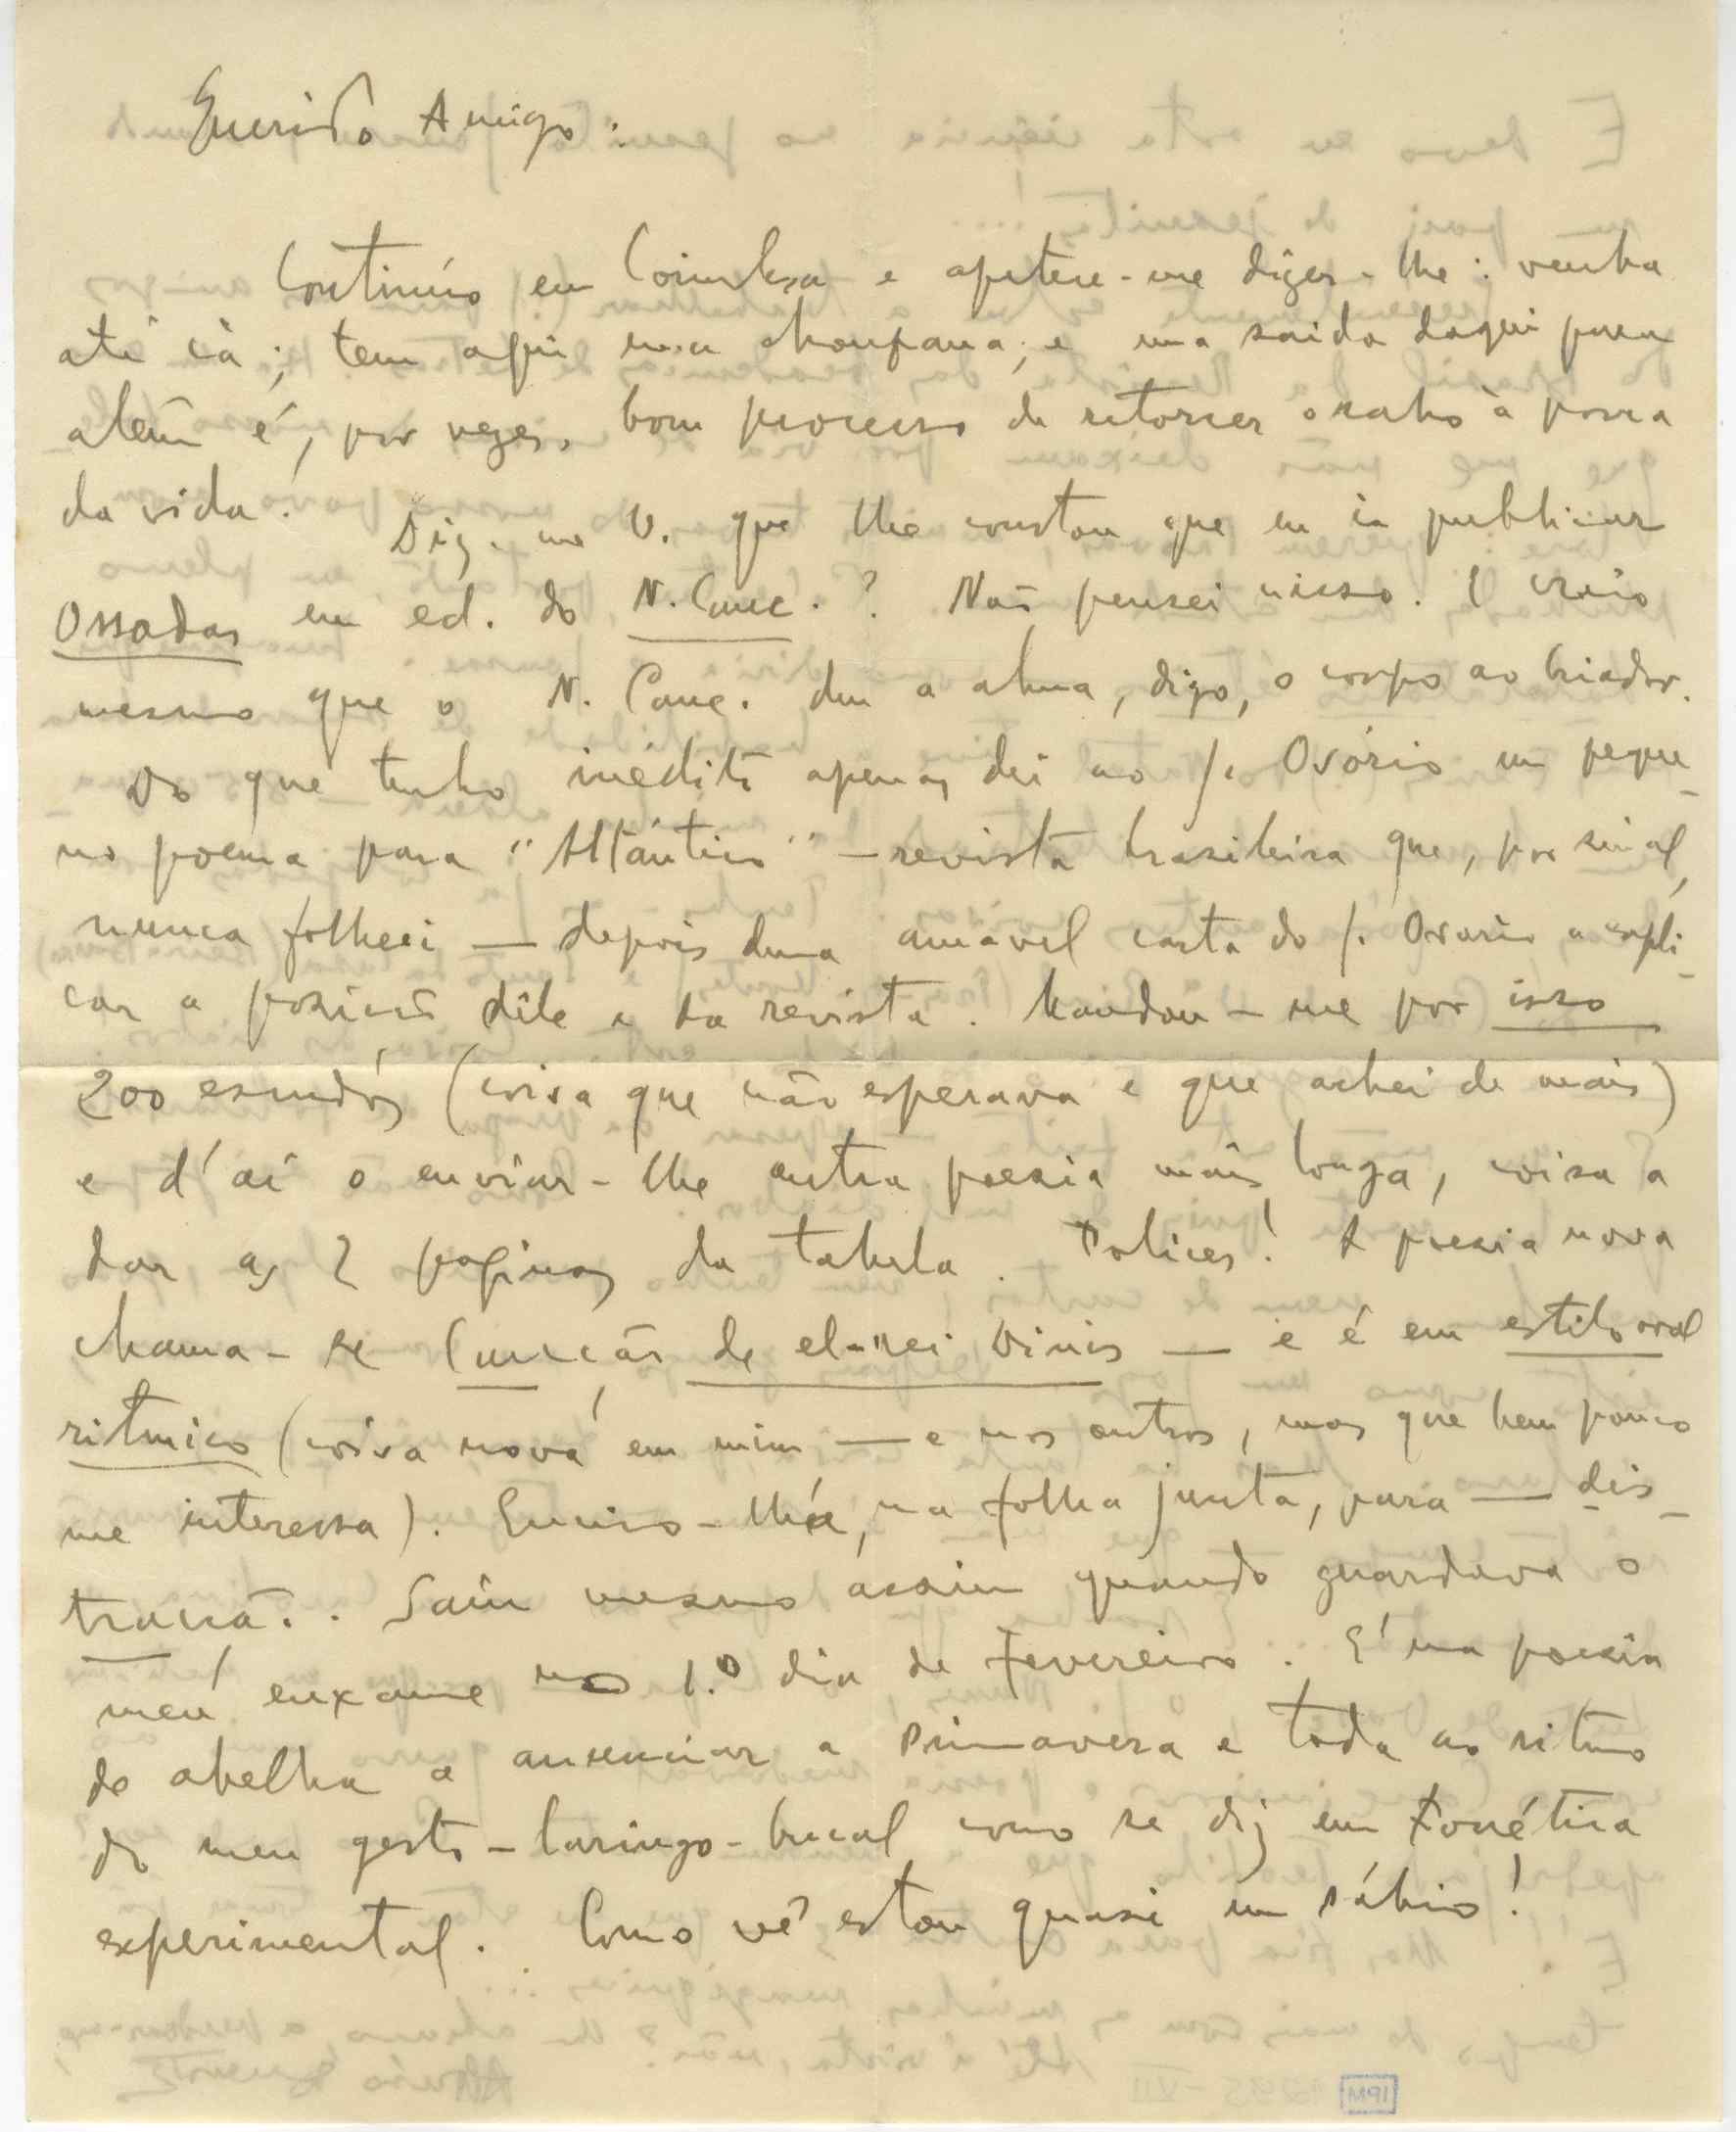 Querido Amigo:
Continúo em Coimbra e apetece-me dizer-lhe: venha
até cá; tem aqui uma choupana; e uma saida daqui para
além é, por vezes, bom processo de retorcer o rabo à porca
da vida.
Diz-me V. que lhe constou que eu ia publicar
Ossadas em ed. do N. Canc.? Não pensei nisso. E creio
mesmo que o N. Canc. deu a alma, digo, o corpo ao Criador.
Do que tenho inédito apenas dei ao J. Osório um peque-
no poema para "Atlântico" — revista brasileira que, por sinal,
nunca folheei — depois duma amável carta do J. Osório a expli-
car a posição dêle e da revista. Mandou-me por isso
200 escudos (coisa que não esperava e que achei de mais)
e d'aí o enviar-lhe outra poesia mais longa, coisa a
dar as 2 páginas da tabela. Tolices! A poesia nova
chama-se Canção de el-rei Dinis — e é em estilo oral
ritmico (coisa nova em mim — e nos outros, mas que bem pouco
me interessa). Envio-lha, na folha junta, para — dis-
tracão.. Saíu mesmo assim quando guardava o
meu enxame no 1.º dia de Fevereiro. É uma poesia
de abelha a anunciar a Primavera e toda ao ritmo
do meu gesto-laringo-bucal como se diz em Fonética
experimental. Como vê estou quasi um sábio!
IPM